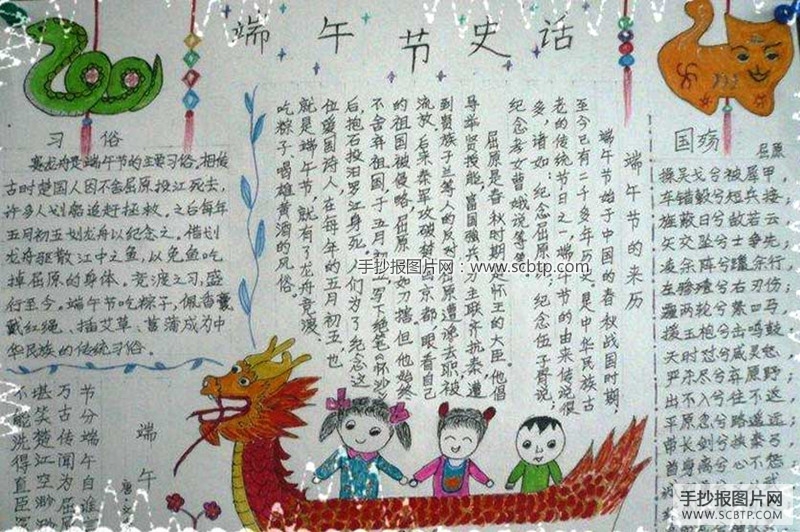 端午节史话
习俗
赛龙舟是端午节的主要习俗。相传
古时楚国人因不舍屈原投江死去，
许多人划船追赶拯救。之后每年
五月初五划龙舟以纪念之。借划
龙舟驱散江中之鱼，以免鱼吃
掉屈原的身体。竞渡之习，盛
行至今。端午节吃粽子，佩香囊
戴红绳，插艾草、菖蒲成为中
华民族的传统习俗。
端午节的来历
端午节始于中国的春秋战国时期，
至今已有二千多年历史。是中华民族古
老的传统节日之一，端午节的由来传说很
多，诸如：纪念屈原说；纪念伍子胥说；
纪念孝女曹娥说等等。
屈原是春秋时期怀王的大臣。他倡
导举贤授能，富国强兵，力主联齐抗秦，遭
到贵族子兰等人的反对，屈原遭谗去职，被
流放。后来秦军攻破楚国京都，眼看自己
的祖国被侵略，屈原心如刀割。但他始终
不舍弃祖国，于五月初五写下绝笔《怀沙》
后，抱石投汨罗江身死。人们为了纪念这
位爱国诗人，在每年的五月初五，也
就是端午节，就有了龙舟竞渡、
吃粽子、喝雄黄酒的风俗。
国殇
屈原
操吴戈兮被犀甲，
车错毂兮短兵接；
旌蔽日兮敌若云，
矢交坠兮士争先；
凌余阵兮躐余行，
左骖殪兮右刃伤；
霾两轮兮絷四马，
援玉枹兮击鸣鼓；
天时怼兮威灵怒，
严杀尽兮弃原野；
出不入兮往不返，
平原忽兮路遥远；
带长剑兮挟秦弓，
首身离兮心不惩
端午
节分端午自谁
万古传闻为屈
堪笑楚江空渺
不能洗得直臣
手抄报图片网：www.scbtp.com
手抄报图片网
SCBTP.COM